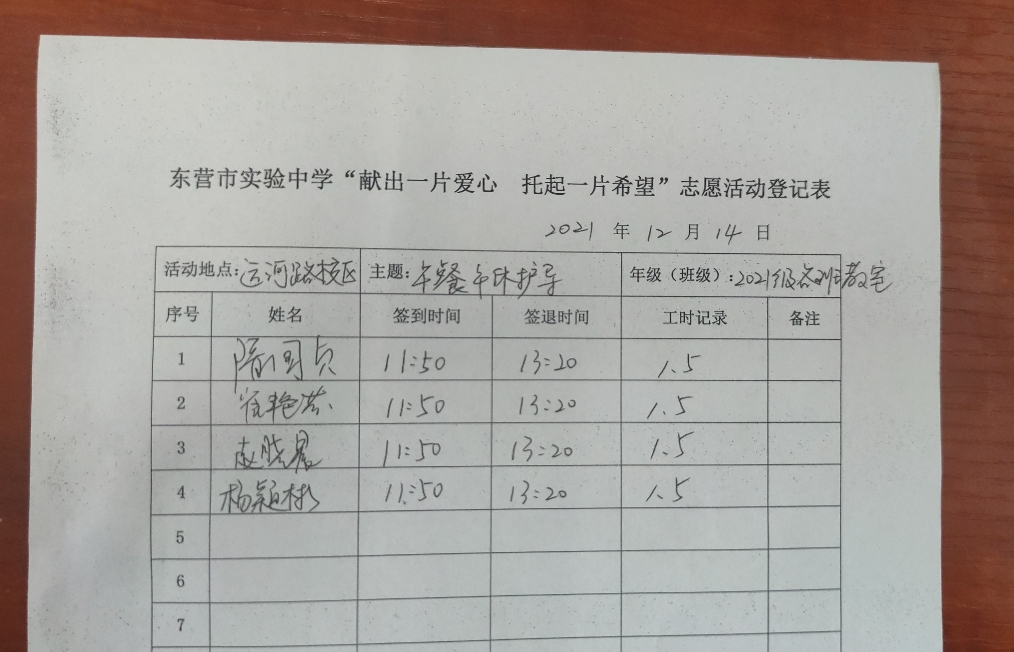 东营市实验中学“献出一片爱心 托起一片希望”志愿活动登记表
2021 年 12 月 14 日
活动地点:运河路校区 主题:午餐午休护导 年级（班级）:2021级各班教室
序号 姓名 签到时间 签退时间 工时记录 备注
1 隋国贞 11:50 13:20 1.5
2 崔艳芬 11:50 13:20 1.5
3 11:50 13:20 1.5
4 杨颖彬 11:50 13:20 1.5
5
6
7